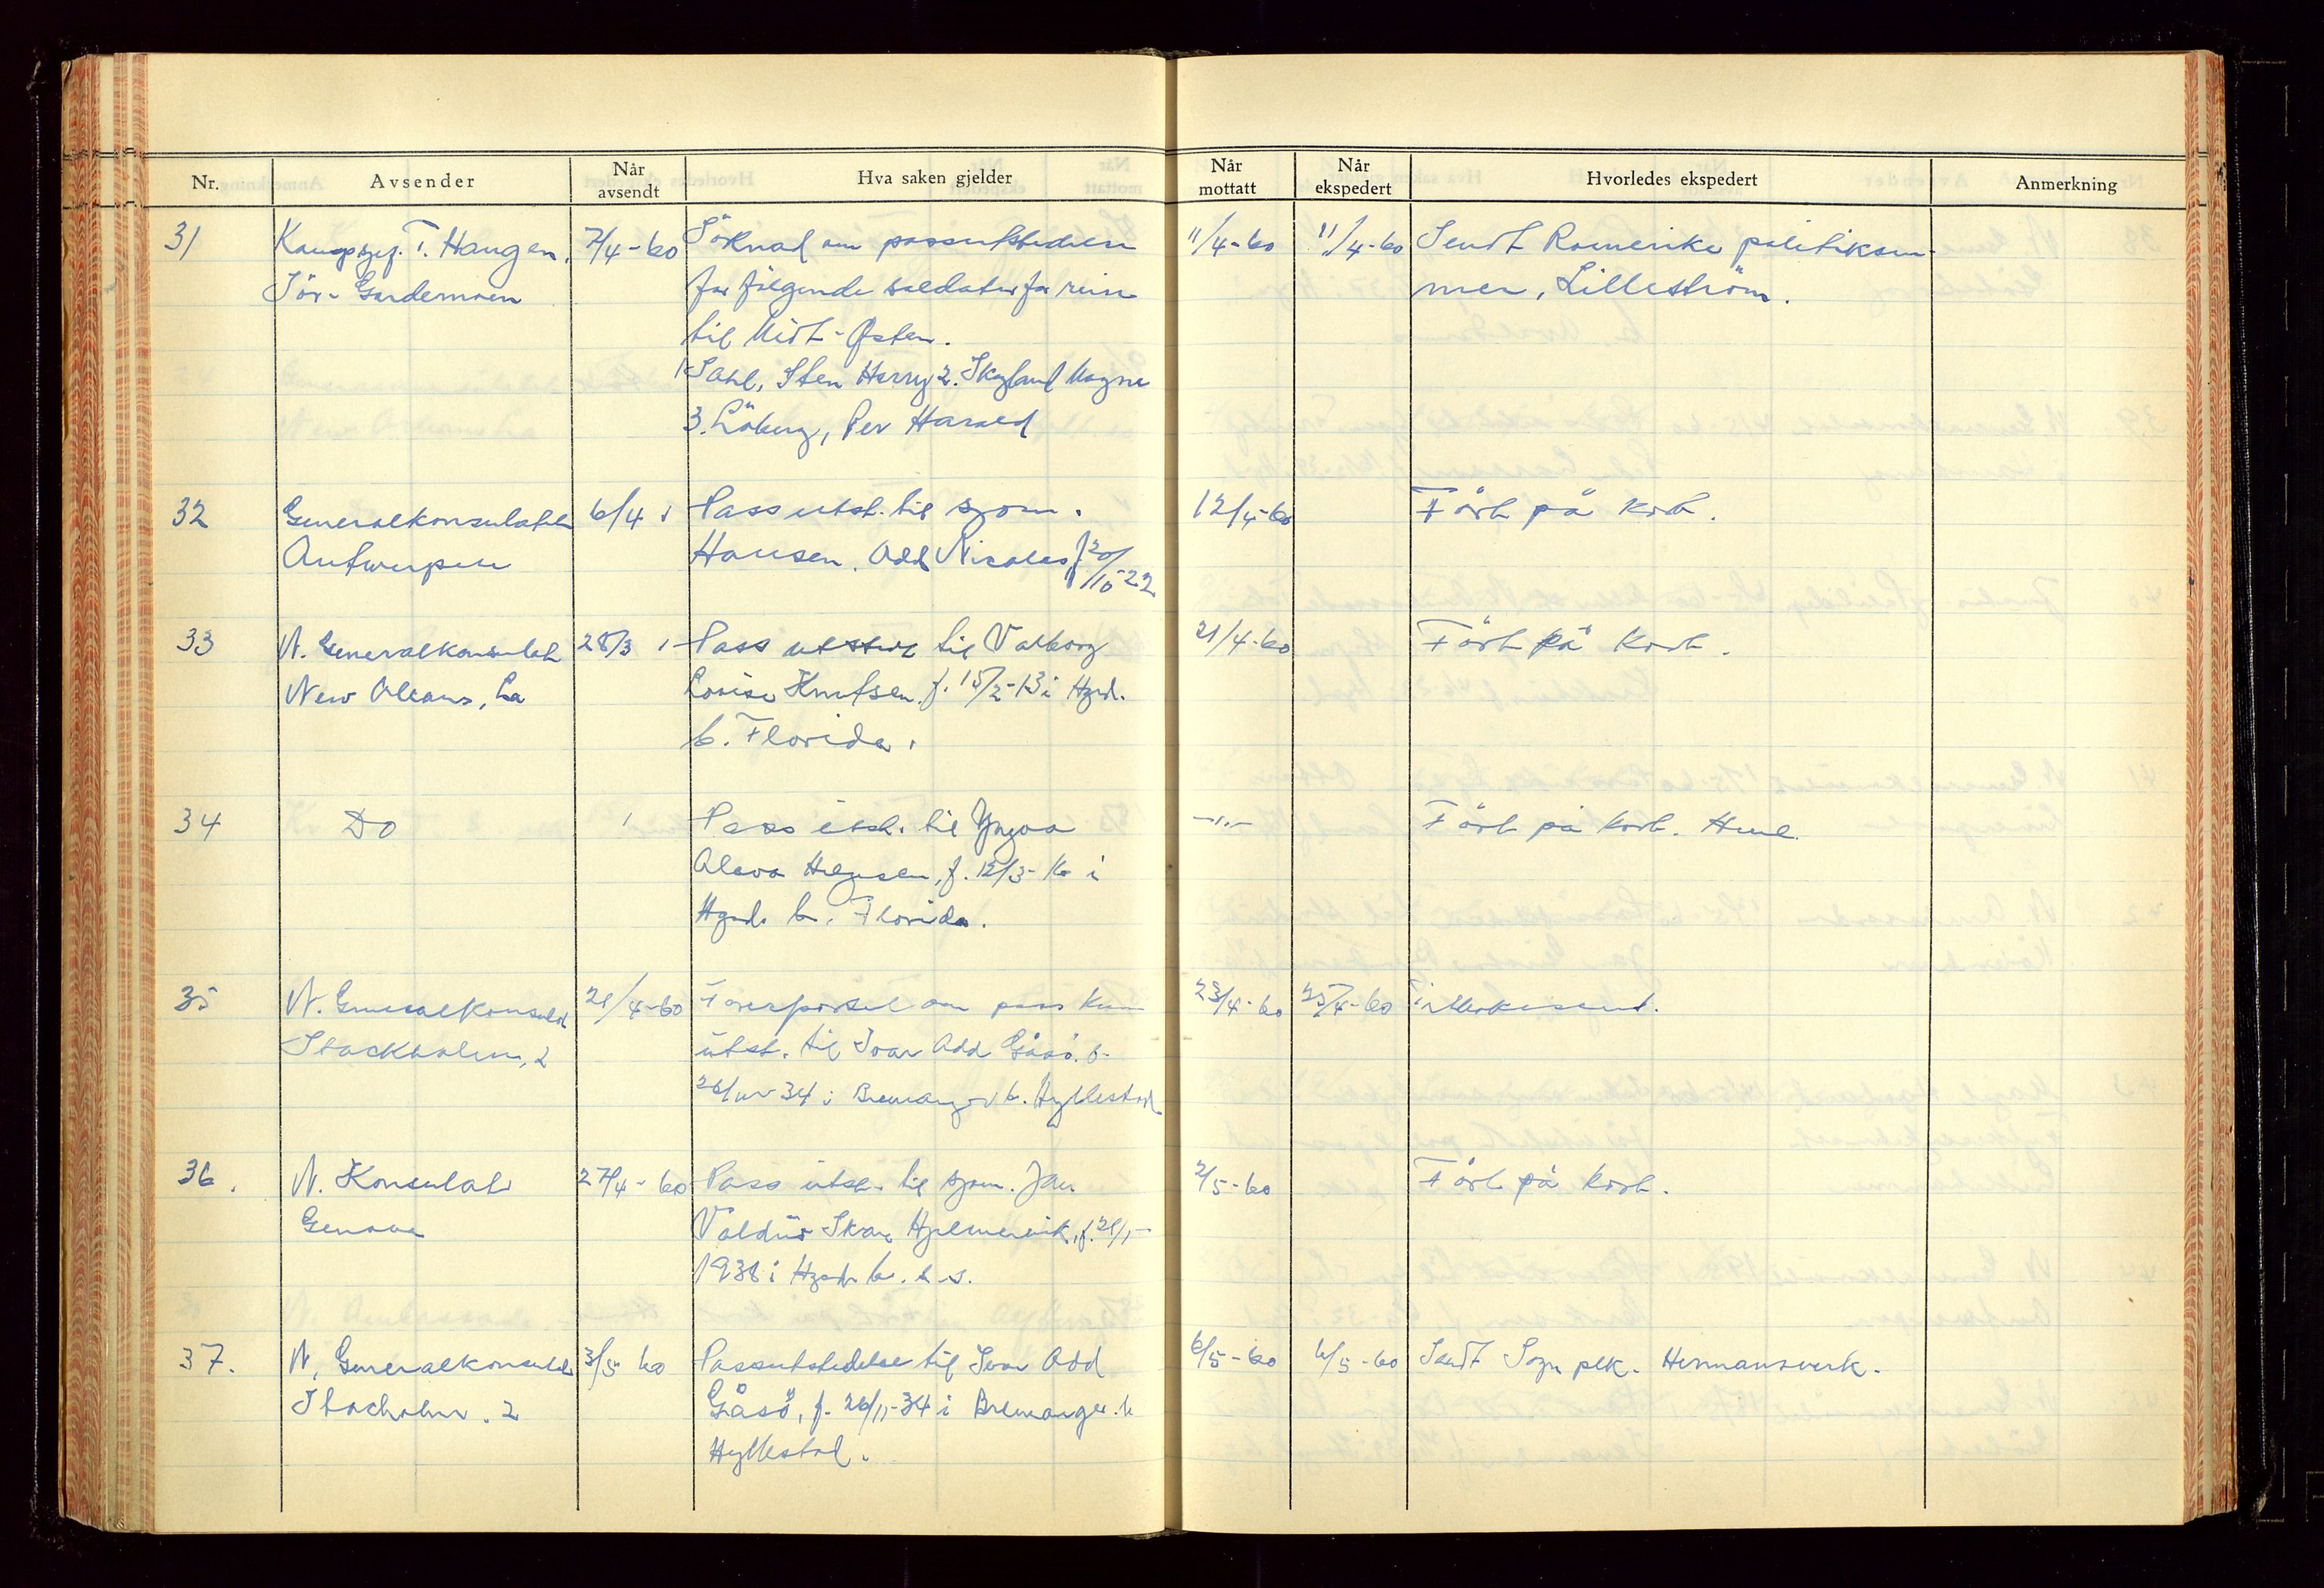 Nr. Avsender Når avsendt Hva saken gjelder Når mottatt Når ekspedert Hvorledes ekspedert Anmerkning
31 T. Haugen, 7/4-60 Söknad om 11/4-60 11/4-60 Sendt Romerike politikam-
Gardermoen for följende soldater for reise mer, Lilleström.
til Midt-Østen.
1 Sten Harry 2. Skyland Magne
3. Löberg, Per Harald
32 Generalkonsulatet 6/4 Pass utst. til sjøm. 12/4-60 Fört på kort.
Antwerpen Hansen, Odd Nicolas f 20/10-22
33 N. Generalkonsulat 28/3 Pass utst til Valborg 21/4-60 Fört på kort.
New Orleans, La Lovise Knutsen, f. 15/2-13 i Hgsd.
b. Florida.
34 Do Pass utst. til Yngva —"— Fört på kort.
Helgesen, f. 12/3-16 i
Hgsd. b. Florida.
35 N. Generalkonsulat 21/4-60 Forespörsel om pass kan 23/4-60 25/4-60
Stockholm, 2 utst. til Ivar Odd Gåsö. f.
26/11-34 i Bremanger b. Hyllestad
36. N. Konsulat 27/4-60 Pass utst. til sjøm. Jan 2/5-60 Fört på kort.
Genova Skar Hjelmervik, f. 21/1-
1938 i Hgsd. b. s. s.
37. N. Generalkonsulat 3/5 60 Passutstedelse til Ivar Odd 6/5-60 6/5-60 Sendt Sogn plk. Hermansverk.
Stocholm. 2 Gåsö, f. 26/11-34 i Bremanger. b
Hyllestad.